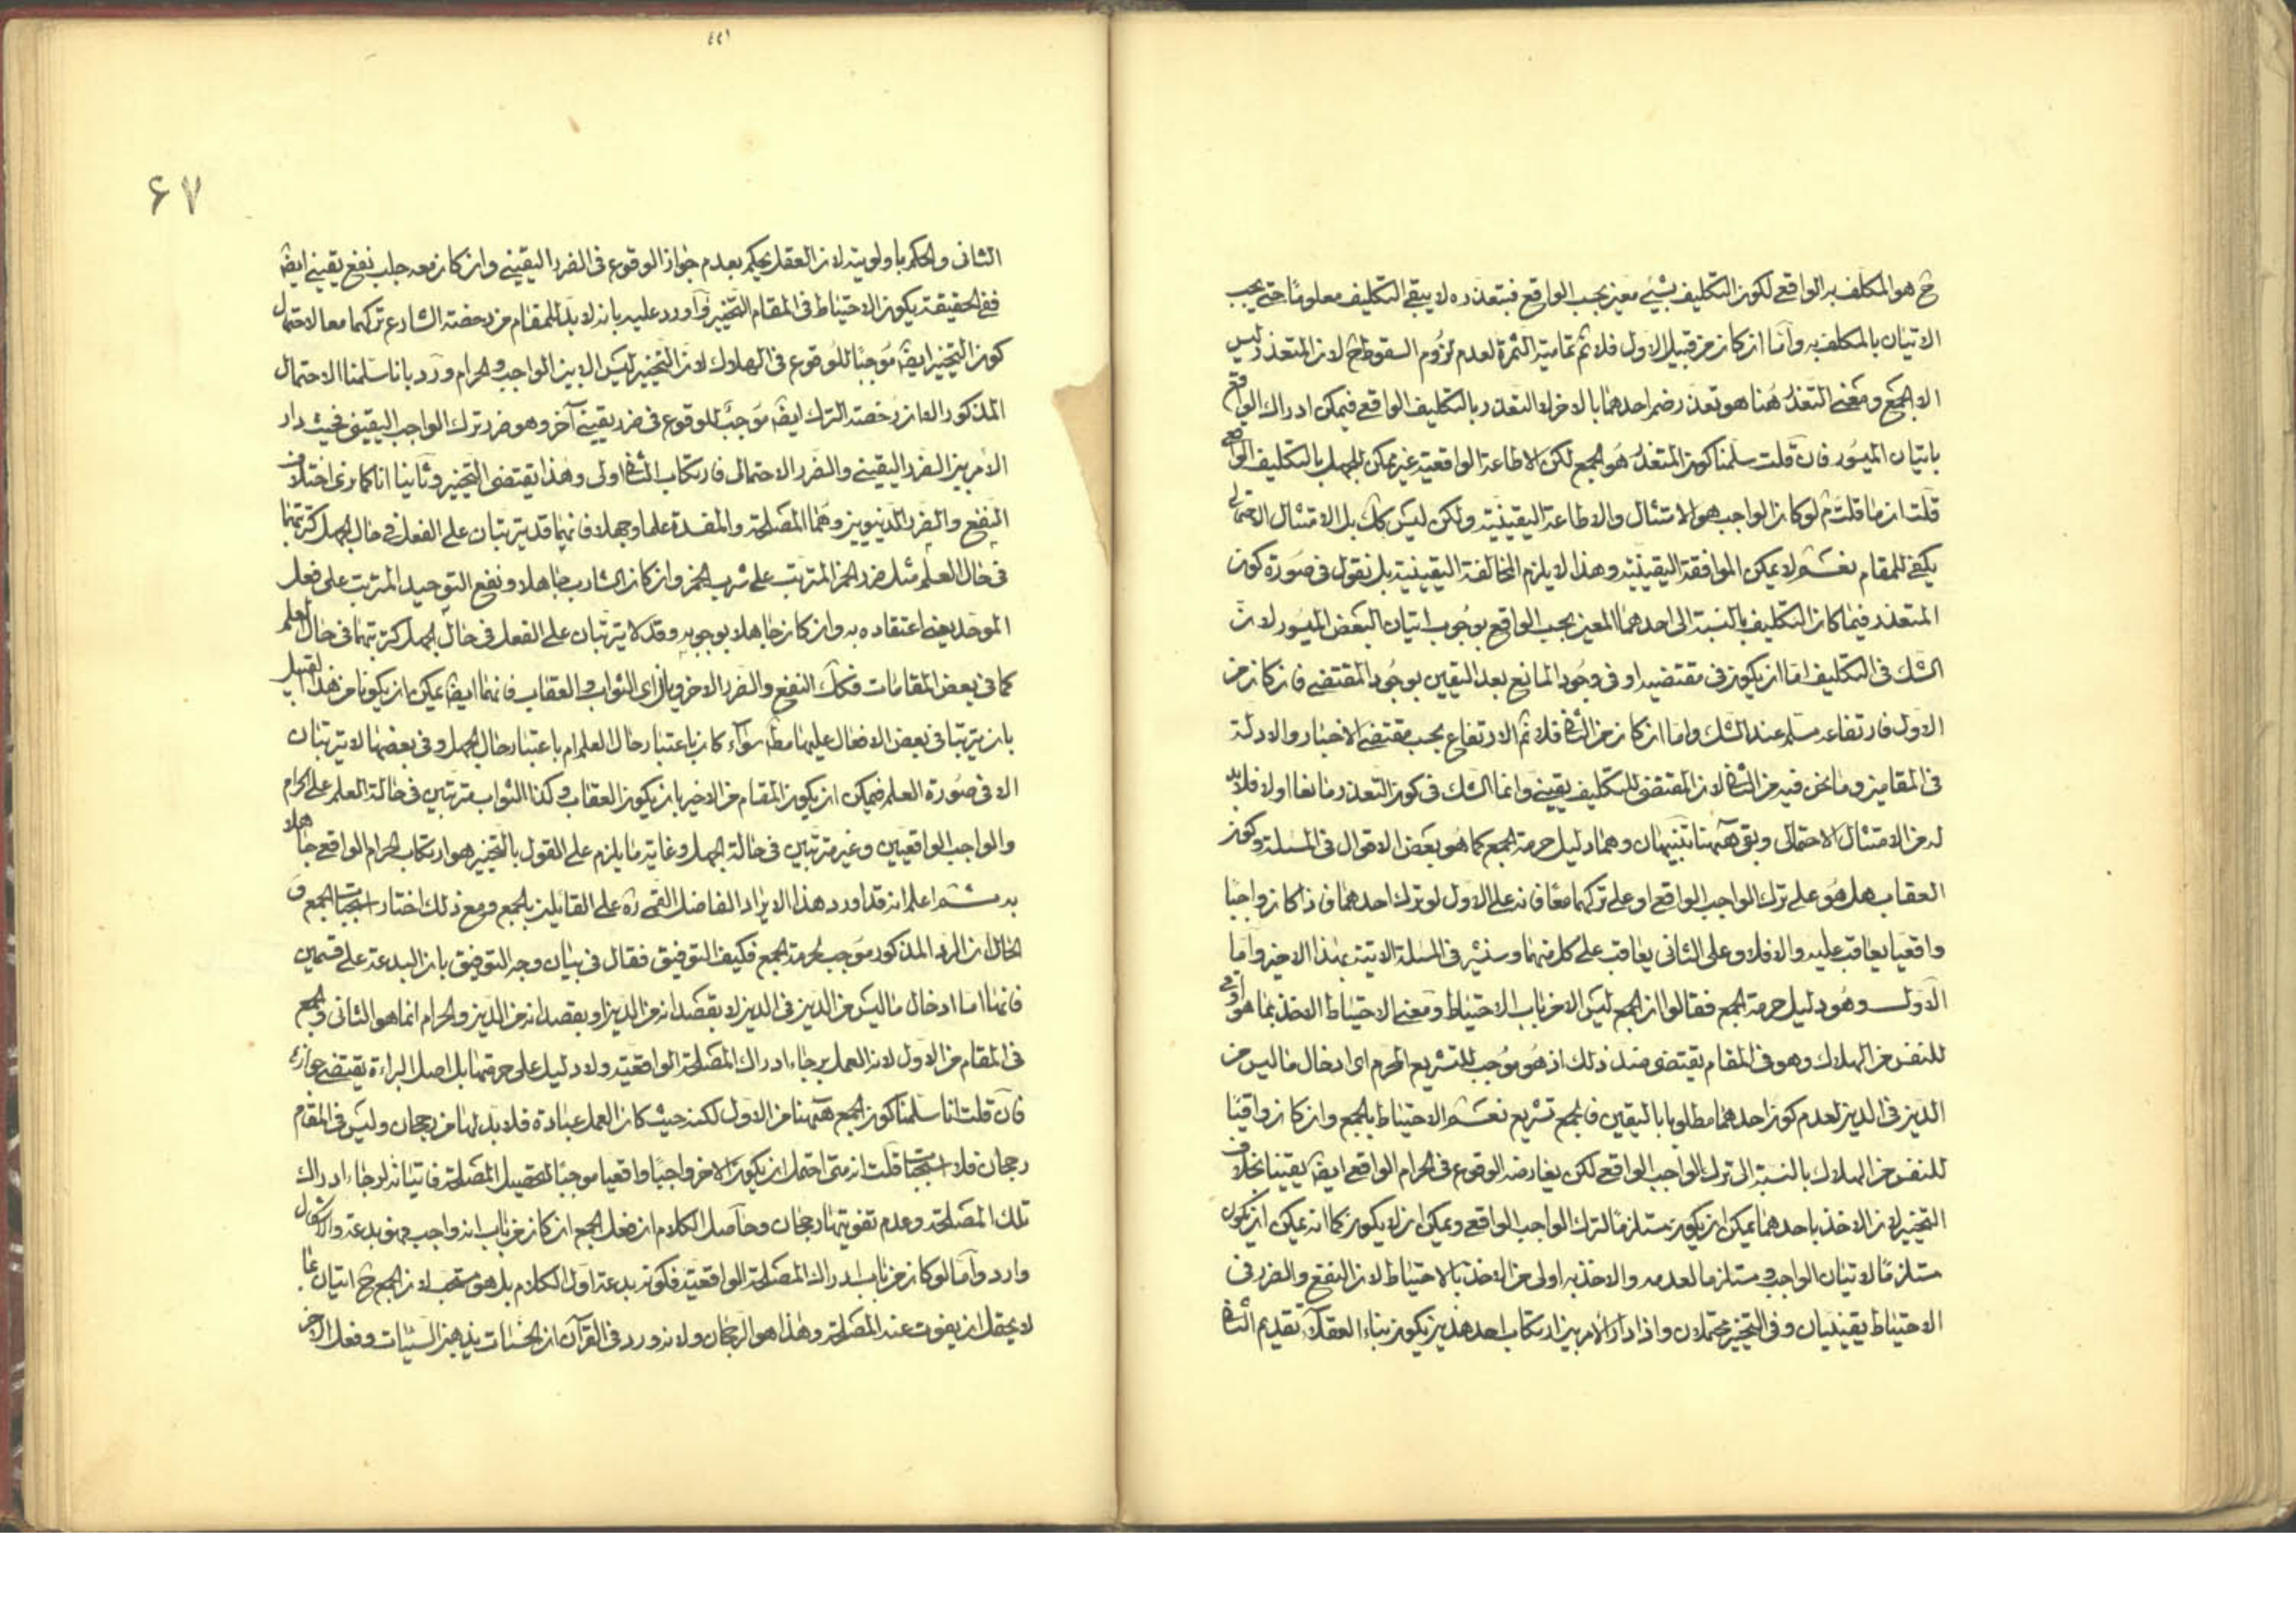 ح هو المكلف به الواقعي لكون التكليف بشيء معين بحسب الواقع فبتعذره لا يبقى التكليف معلوما حتى يجب
الاتيان بالمكلف به واما ان كان من قبيل الاول فلا ثم تمامية الثمرة لعدم لزوم السقوط ح لان المتعذر ليس
الا الجمع ومعنى التعذر هنا هو تعذر ضم احدهما بالاخر لا التعذر بالتكليف الواقعي فيمكن ادراك الواقع
باتيان الميسور فان قلت سلمنا كون المتعذر هو الجمع لكن الاطاعة الواقعية غير ممكن للجهل بالتكليف الواقعي
قلت ان ما قلت ثم لو كان الواجب هو الامتثال والاطاعة اليقينية ولكن ليس كك بل الامتثال الاحتمالي
يكفي للمقام نعم لا يمكن الموافقة اليقينية وهذا لا يلزم المخالفة اليقينية بل نقول في صورة كون
المتعذر فيما كان التكليف بالنسبة الى احدهما المعين بحسب الواقع بوجوب اتيان البعض الميسور لان
الشك في التكليف اما ان يكون في مقتضيه او في وجود المانع بعد اليقين بوجود المقتضي فان كان من
الاول فارتفاعه مسلم عند الشك واما ان كان من الثاني فلا ثم الارتفاع بحسب مقتضى الاخبار والادلة
في المقامين وما نحن فيه من الثاني لان المقتضي للتكليف يقيني وانما الشك في كون التعذر مانعا اولا فلا بد
له من الامتثال الاحتمالي وبقي ههنا تنبيهان وهما دليل حرمة الجمع كما هو بعض الاقوال في المسئلة وكون
العقاب هل هو على ترك الواجب الواقعي او على تركهما معا فانه على الاول لو ترك احدهما فاذا كان واجبا
واقعيا يعاقب عليه والا فلا وعلى الثاني يعاقب على كل منهما وسنشير في المسئلة الاتية بهذا الاخير واما
الاول وهو دليل حرمة الجمع فقالوا ان الجمع ليس الا من باب الاحتياط ومعنى الاحتياط الاخذ بما هو اوقى
للنفس من الهلاك وهو في المقام يقتضي ضد ذلك اذ هو موجب للتشريع المحرم اي ادخال ما ليس من
الدين في الدين لعدم كون احدهما مطلوبا باليقين فالجمع تشريع نعم الاحتياط بالجمع وان كان واقيا
للنفس من الهلاك بالنسبة الى ترك الواجب الواقعي لكن يعارضه الوقوع في الحرام الواقعي ايضا يقينا بخلاف
التخيير لان الاخذ باحدهما يمكن ان يكون مستلزما لترك الواجب الواقعي ويمكن ان لا يكون كما انه يمكن ان يكون
مستلزما لاتيان الواجب ومستلزما لعدمه والاخذ به اولى من الاخذ بالاحتياط لان النفع والضرر في
الاحتياط يقينيان وفي التخيير محتملان واذا دار الامر بين ارتكاب احد هذين يكون بناء العقلاء تقديم الثاني
٤٤١
۶۷
الثاني والحكم باولويته لان العقل يحكم بعدم جواز الوقوع في الضرر اليقيني وان كان معه جلب نفع يقيني ايضا
ففي الحقيقة يكون الاحتياط في المقام التخيير واورد عليه بانه لا بد للمقام من رخصة الشارع تركهما معا لاحتمال
كون التخيير ايضا موجبا للوقوع في الهلاك لان التخيير ليس الا بين الواجب والحرام ورد بانا سلمنا الاحتمال
المذكور الا ان رخصة الترك ايضا موجب للوقوع في ضرر يقيني آخر وهو ضرر ترك الواجب اليقيني فحيث دار
الامر بين الضرر اليقيني والضرر الاحتمالي فارتكاب الثاني اولى وهذا يقتضي التخيير وثانيا انا كما نرى اختلاف
النفع والضرر الدنيويين وهما المصلحة والمفسدة علما وجهلا فانهما قد يترتبان على الفعل في حال الجهل كترتبهما
في حال العلم مثل ضرر الخمر المترتب على شرب الخمر وان كان الشارب جاهلا ونفع التوحيد المترتب على فعل
الموحد يعني اعتقاده به وان كان جاهلا بوجوبه وقد لا يترتبان على الفعل في حال الجهل كترتبهما في حال العلم
كما في بعض المقامات فكك النفع والضرر الاخرويان اي الثواب والعقاب فانهما ايضا يمكن ان يكونا من هذا القبيل
بان يترتبا في بعض الافعال عليهما مط سواء كان باعتبار حال العلم ام باعتبار حال الجهل وفي بعضها لا يترتبان
الا في صورة العلم فيمكن ان يكون المقام من الاخير بان يكون العقاب وكذا الثواب مترتبين في حالة العلم على الحرام
والواجب الواقعيين وغير مترتبين في حالة الجهل وغاية ما يلزم على القول بالتخيير هو ارتكاب الحرام الواقعي جاهلا
به ثم اعلم انه قد اورد هذا الايراد الفاضل القمي ره على القائلين بالجمع ومع ذلك اختار استحباب الجمع و
الحال ان الرد المذكور موجب لحرمة الجمع فكيف التوفيق فقال في بيان وجه التوفيق بان البدعة على قسمين
فانها اما ادخال ما ليس من الدين في الدين لا بقصد انه من الدين او بقصد انه من الدين والحرام انما هو الثاني والجمع
في المقام من الاول لانه العمل برجاء ادراك المصلحة الواقعية ولا دليل على حرمتها بل اصل البراءة يقتضي جوازه
فان قلت انا سلمنا كون الجمع ههنا من الاول لكنه حيث كان العمل عبادة فلا بد لها من رجحان وليس في المقام
رجحان فلا استحباب قلت انه متى احتمل ان يكون الاخر واجبا واقعيا موجبا لتحصيل المصلحة فاتيانه لرجاء ادراك
تلك المصلحة وعدم تفويتها رجحان وحاصل الكلام ان فعل الجمع ان كان من باب انه واجب فهو بدعة والاشكال
وارد واما لو كان من باب ادراك المصلحة الواقعية فكونه بدعة اول الكلام بل هو مستحب لان الجمع ح اتيان بما
لا يحتمل ان يفوت عنه المصلحة وهذا هو الرجحان ولانه ورد في القرآن ان الحسنات يذهبن السيئات وفعل الاخر